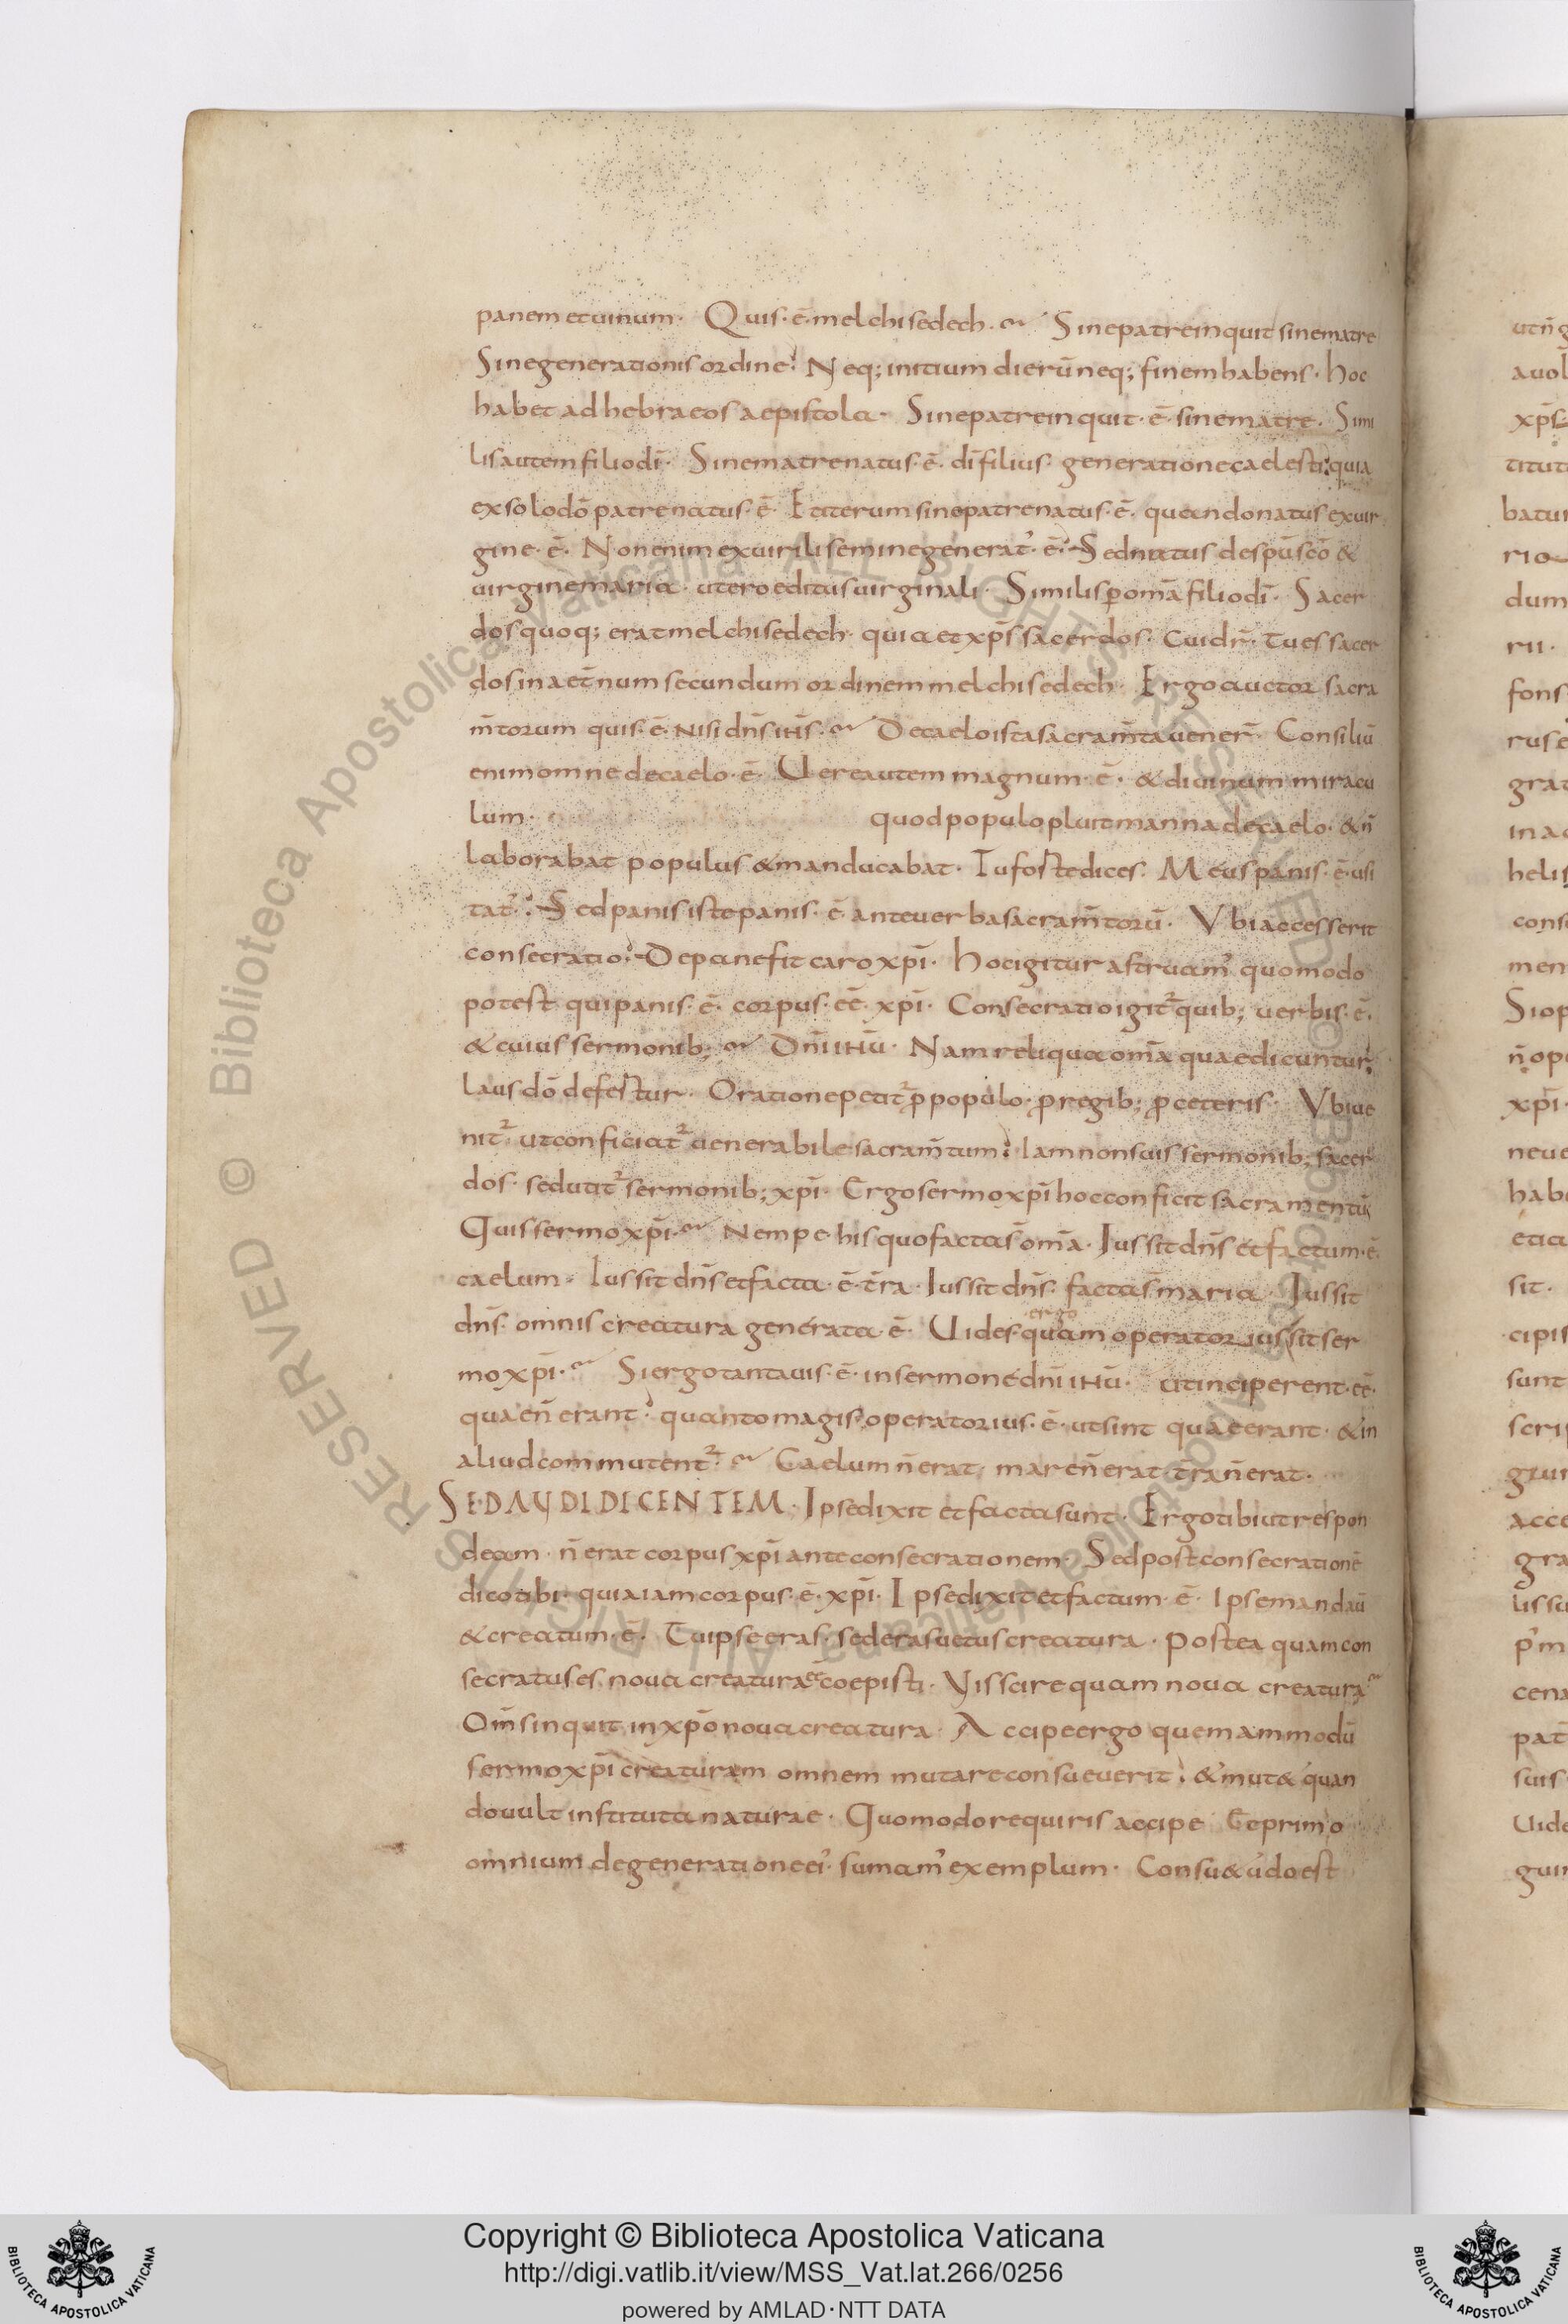 panem et uinum· Quis·ē·melchisedech· Sine patre inquit sine matre
Sine generationis ordine· Neq; initium dierū neq; finem habens· hoc
habet ad hebraeos aepistola· Sine patre inquit·ē·sine matre· Simi
lis autem filio dī· Sine matre natus·ē·dī filius· generatione caelesti· quia
ex solo dō patre natus·ē· Et iterum sine patre natus·ē· quando natus ex uir
gine·ē· Non enim ex uirili semine generat᾽·ē· Sed natus de spū scō &
uirgine maria· utero editus uirginali· Similis p omā filio dī· Sacer
dos quoq; erat melchisedech· quia et xp̄s sacerdos· Cui dr̄· Tu es sacer
dos in aet̄num secundum ordinem melchisedech· Ergo auctor sacra
m̄torum quis·ē·nisi dn̄s ih̄s· De caelo ista sacram̄ta uener̄· Consiliū
enim omne de caelo·ē· Uere autem magnum·ē· & diuinum miracu
lum· quod populo pluit manna de caelo· & n̄
laborabat populus & manducabat· Tu forte dices· Meus panis·ē·usi
tat᾽· Sed panis iste panis·ē·ante uerba sacram̄torū· Ubi accesserit
consecratio· De pane fit caro xp̄i· hoc igitur astruam᾽ quomodo
potest qui panis·ē·corpus·eē·xp̄i· Consecratio igit² quib; uerbis·ē·
& cuius sermonib; Dn̄i ih̄ū· Nam reliqua omā quae dicuntur·
laus dō defertur· Oratione petit² p populo· p regib; p ceteris· Ubi ue
nit² ut conficiat² uenerabile sacram̄tum· Iam non suis sermonib; sacer
dos· sed utit² sermonib; xp̄i· Ergo sermo xp̄i hoc conficit sacramentū
Quis sermo xp̄i· Nempe his quo facta s̄ omā· Iussit dn̄s et factum·ē·
caelum· Iussit dn̄s et facta·ē·t̄ra· Iussit dn̄s· facta s̄ maria· Iussit
dn̄s· omnis creatura generata·ē· Uides ergo quam operatorius sit ser
mo xp̄i· Si ergo tanta uis·ē·in sermone dn̄i ih̄ū· ut inciperent·eē·
quae n̄ erant· quanto magis operatorius·ē·ut sint quae erant· & in
aliud commutent²· Caelum n̄ erat· mare n̄ erat· t̄ra n̄ erat·
SED AUDI DICENTEM· Ipse dixit et facta sunt· Ergo tibi ut respon
deam· n̄ erat corpus xp̄i ante consecrationem· Sed post consecrationē
dico tibi· quia iam corpus·ē·xp̄i· Ipse dixit et factum·ē· Ipse mandaū
& creatum·ē· Tu ipse eras· sed eras uetus creatura· Postea quam con
secratus es noua creatura eē coepisti· Vis scire quam noua creatura
Om̄s inquit in xp̄o noua creatura· Accipe ergo quemammodū
sermo xp̄i creaturam omnem mutare consueuerit· & mut& quan
do uult instituta naturae· Quomodo requiris accipe Et primo
omnium de generatione ei᾽ sumam᾽ exemplum· Consu&udo est
Copyright © Biblioteca Apostolica Vaticana
http://digi.vatlib.it/view/MSS_Vat.lat.266/0256
powered by AMLAD·NTT DATA